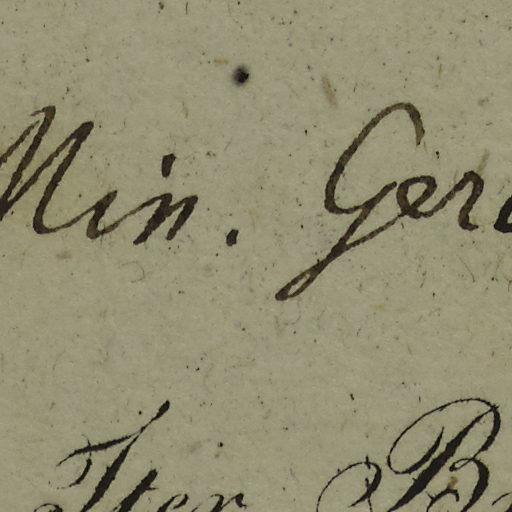 Min. Gera
Iter B